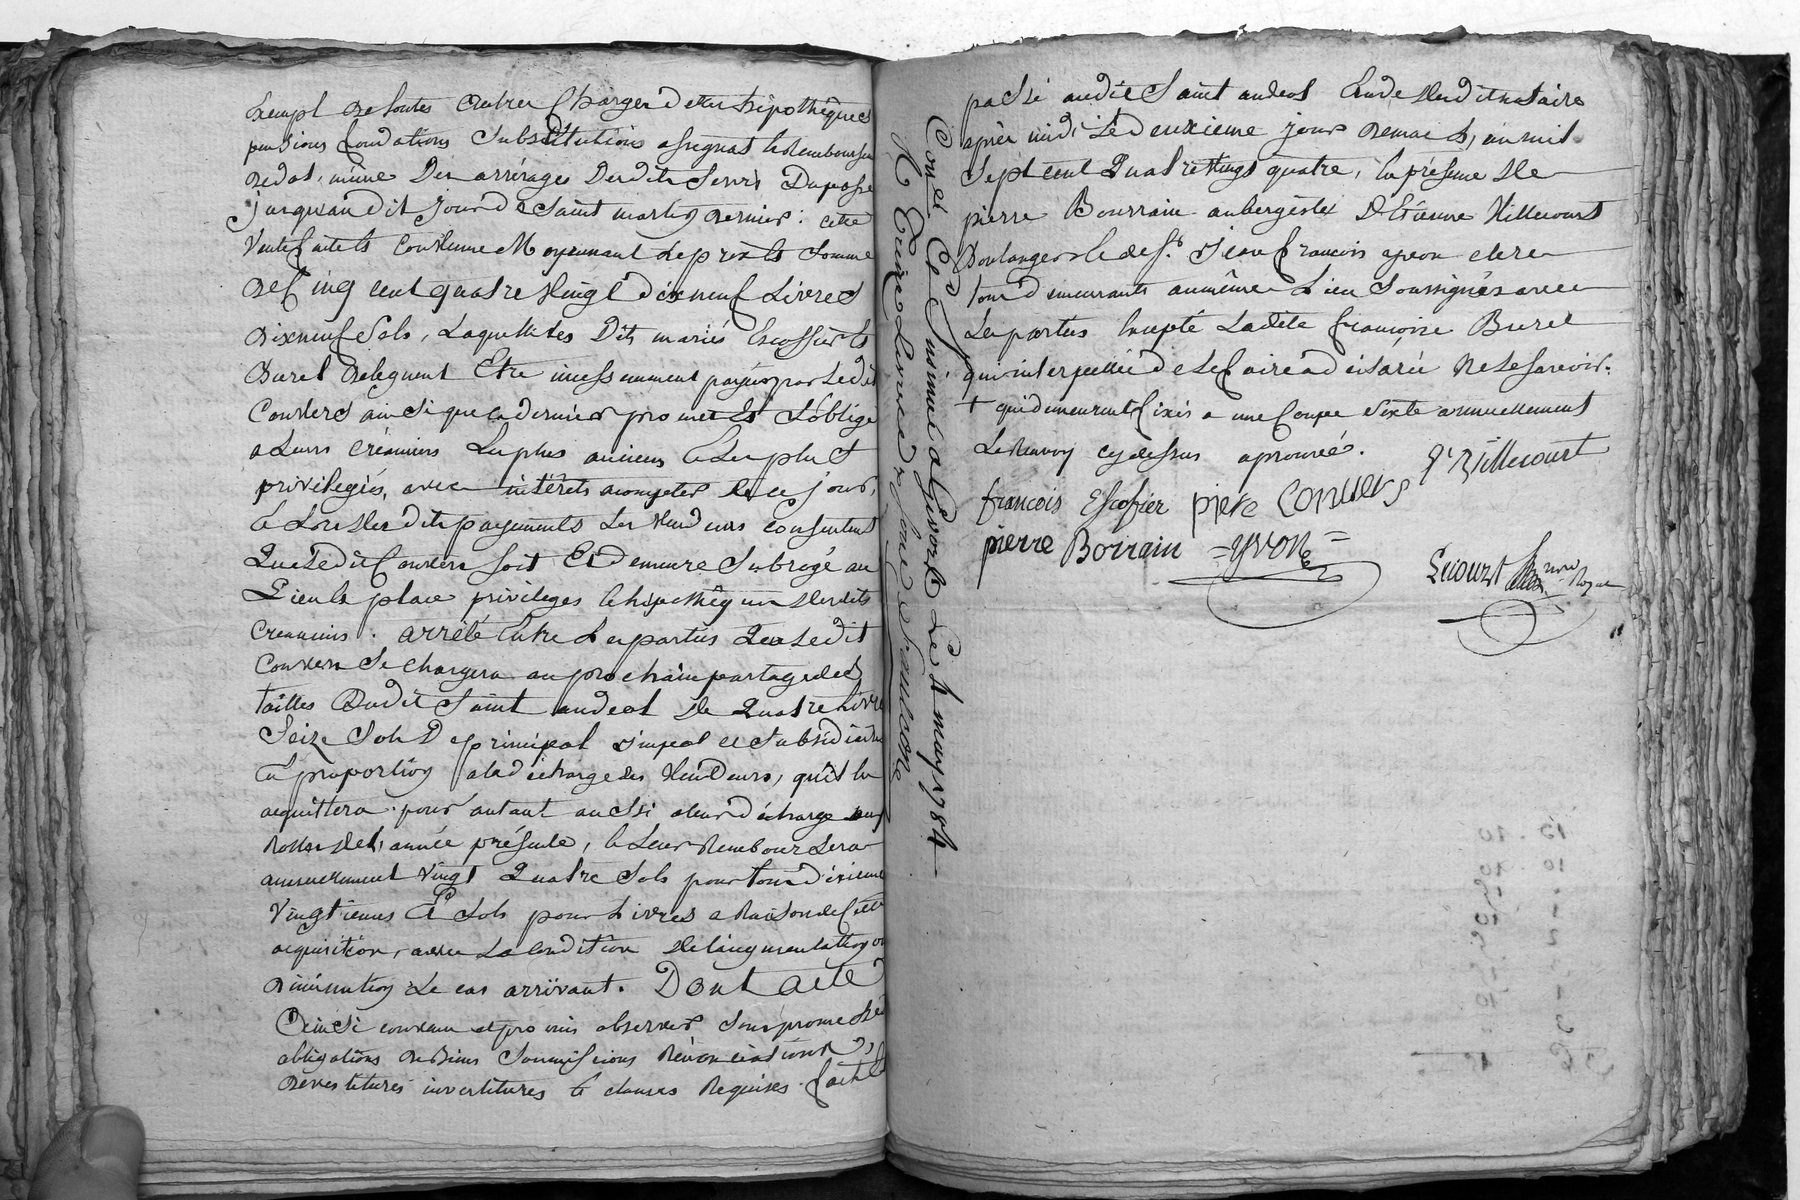 Exempt de toutes autres Charges dettes hipothêques
pensions fondations Substitutions asignas
dedot, même Des arrérages Desdits Servis Du passé
jusquau dit jour de Saint martin dernier: cette
Vente faite et Convenue Moyennant le prix et Somme
de Cinq cent quatre vingt dixneuf Livres
dixneuf Sols, Laquelle les Dits mariés Escoffier et
Burel deleguent Etre incessamment payée par Ledit
Convers ainsi que ce dernier promet et S'oblige
a Leurs Créanciers Les plus anciens et Les plus
privilegiés, avec intérêts acompter de ce jour,
et Lors des dits payements Les Vendeurs consentent
Que Ledit Convers soit Et demeure Subrogé au
Lieu et place privileges et hipothêques desdits
Creanciers. arrêté Entre Les parties Que Ledit
Convers Se chargera au prochain partage des
tailles Dudit Saint andeol de Quatre Livres
Seize Sols De principal d'impot et Subsidiaire
En proportion a la décharge des Vendeurs, qu'il
acquittera pour autant aussi a leur décharge
Rolles de L'année présente, et Leur Remboursera
annuellement Vingt Quatre Sols pour tous dixieme
Vingtiemes Et Sols pour Livres a Raison de Cette
acquisition, avec La Condition de l'augmentation ou
diminution Le cas arrivant. Dont acte
Ainsi convenu et promis observer Sous promesses
obligations de Biens Soumissions Rénonciations
devestitures investitures et clauses Requises. fait et
Con.lé Et Insinué a Givors Le 4 may 1784
R Treize Livres
passé audit Saint andeol Etude dudit notaire
après midi Le deuxieme jour de mars, an mil
Sept cent Quatre Vingt quatre, En présence de
pierre Bourrain aubergiste D'Etienne Villecourt
Boulanger et de Sr. Jean francois yvon clerc
tous demeurants au même Lieu Soussignés avec
Les parties Excepté Ladite francoise Burel
qui interpellée de Le faire a déclaré ne Le Savoir.
+ qui demeurent fixés a une Coupe Sixte annuellement
Le Renvoy cy dessus aprouvé.
E Villecourt
francois Escofier piere Convers
pierre Borrain =YVON=
Lecourt